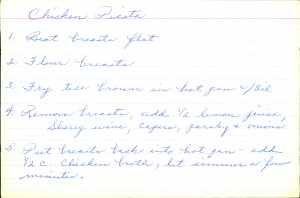 Chicken Picata
1. Beat breasts flat
2. Flour breasts
3. Fry till brown in hot pan w/oil
4. Remove breasts, add 1/2 lemon juice,
Sherry wine, capers, parsley & onions
5. Put breasts back into hot pan - add
1/2 c. Chicken broth, let simmer a few
minutes.